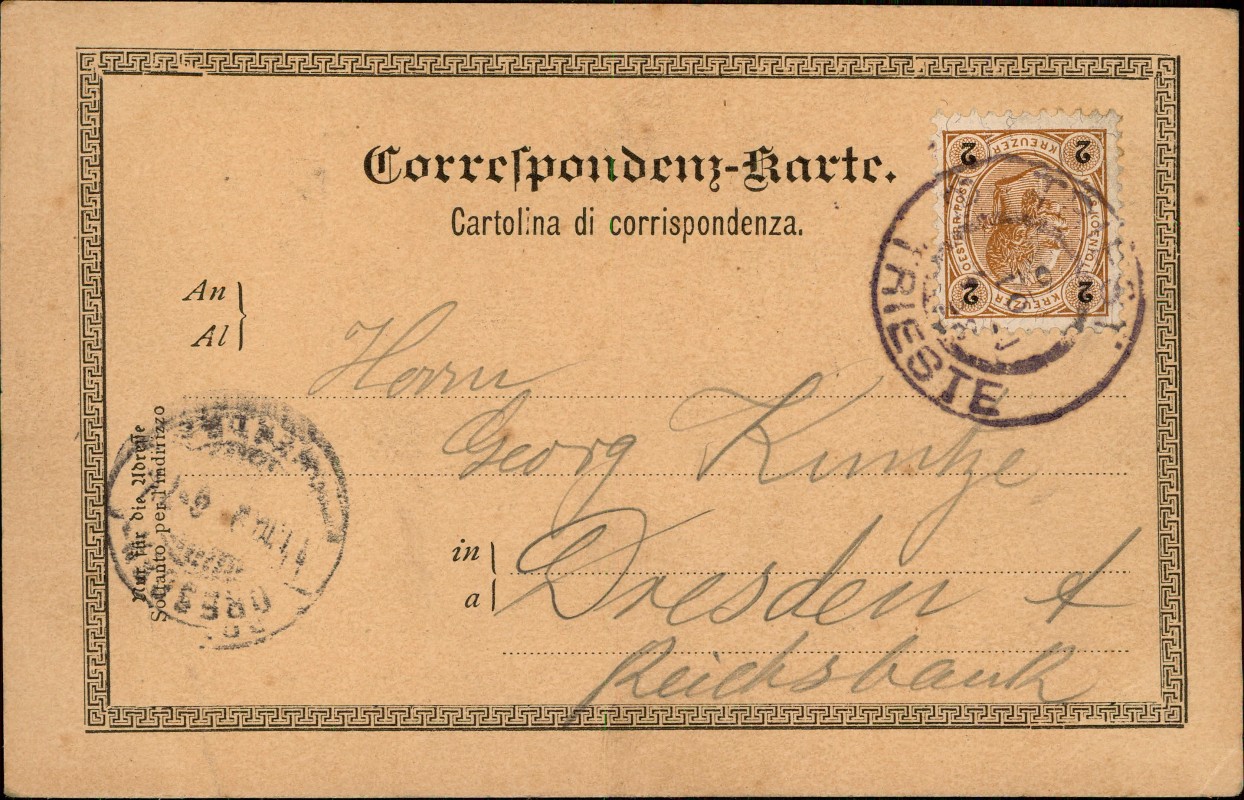 Correspondenz-Karte.
Cartolina di corrispondenza.
An
Al
Herrn
Georg Kuntze
in
a
Dresden A
Reichsbank
Nur für die Adresse
Soltanto per l'indirizzo
2 KREUZER 2
OESTERR. POST
2 KREUZER 2
TRIESTE